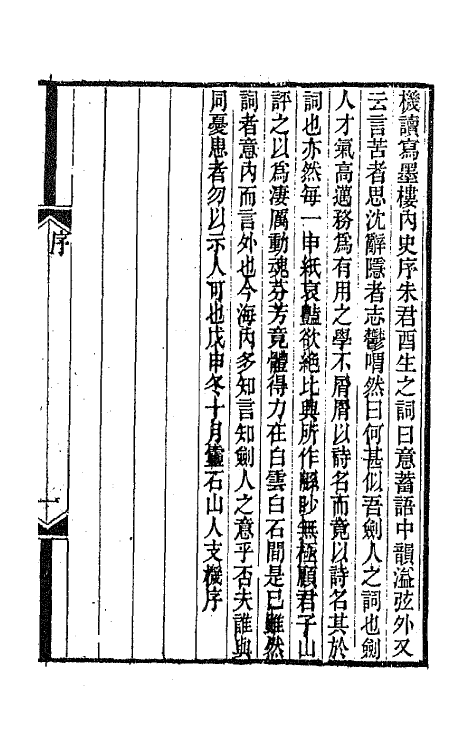 機讀寫墨樓內史序朱君酉生之詞曰意蓄語中韻溢弦外又
云言苦者思沈辭隱者志鬱喟然曰何甚似吾劍人之詞也劍
人才氣高邁務爲有用之學不屑屑以詩名而竟以詩名其於
詞也亦然每一申紙哀豔欲絕比興所作緜眇無極顧君子山
評之以爲淒厲動魂芬芳竟體得力在白雲白石間是已雖然
詞者意內而言外也今海內多知言知劍人之意乎否夫誰與
同憂患者勿以示人可也戊申冬十月靈石山人支機序
序
一